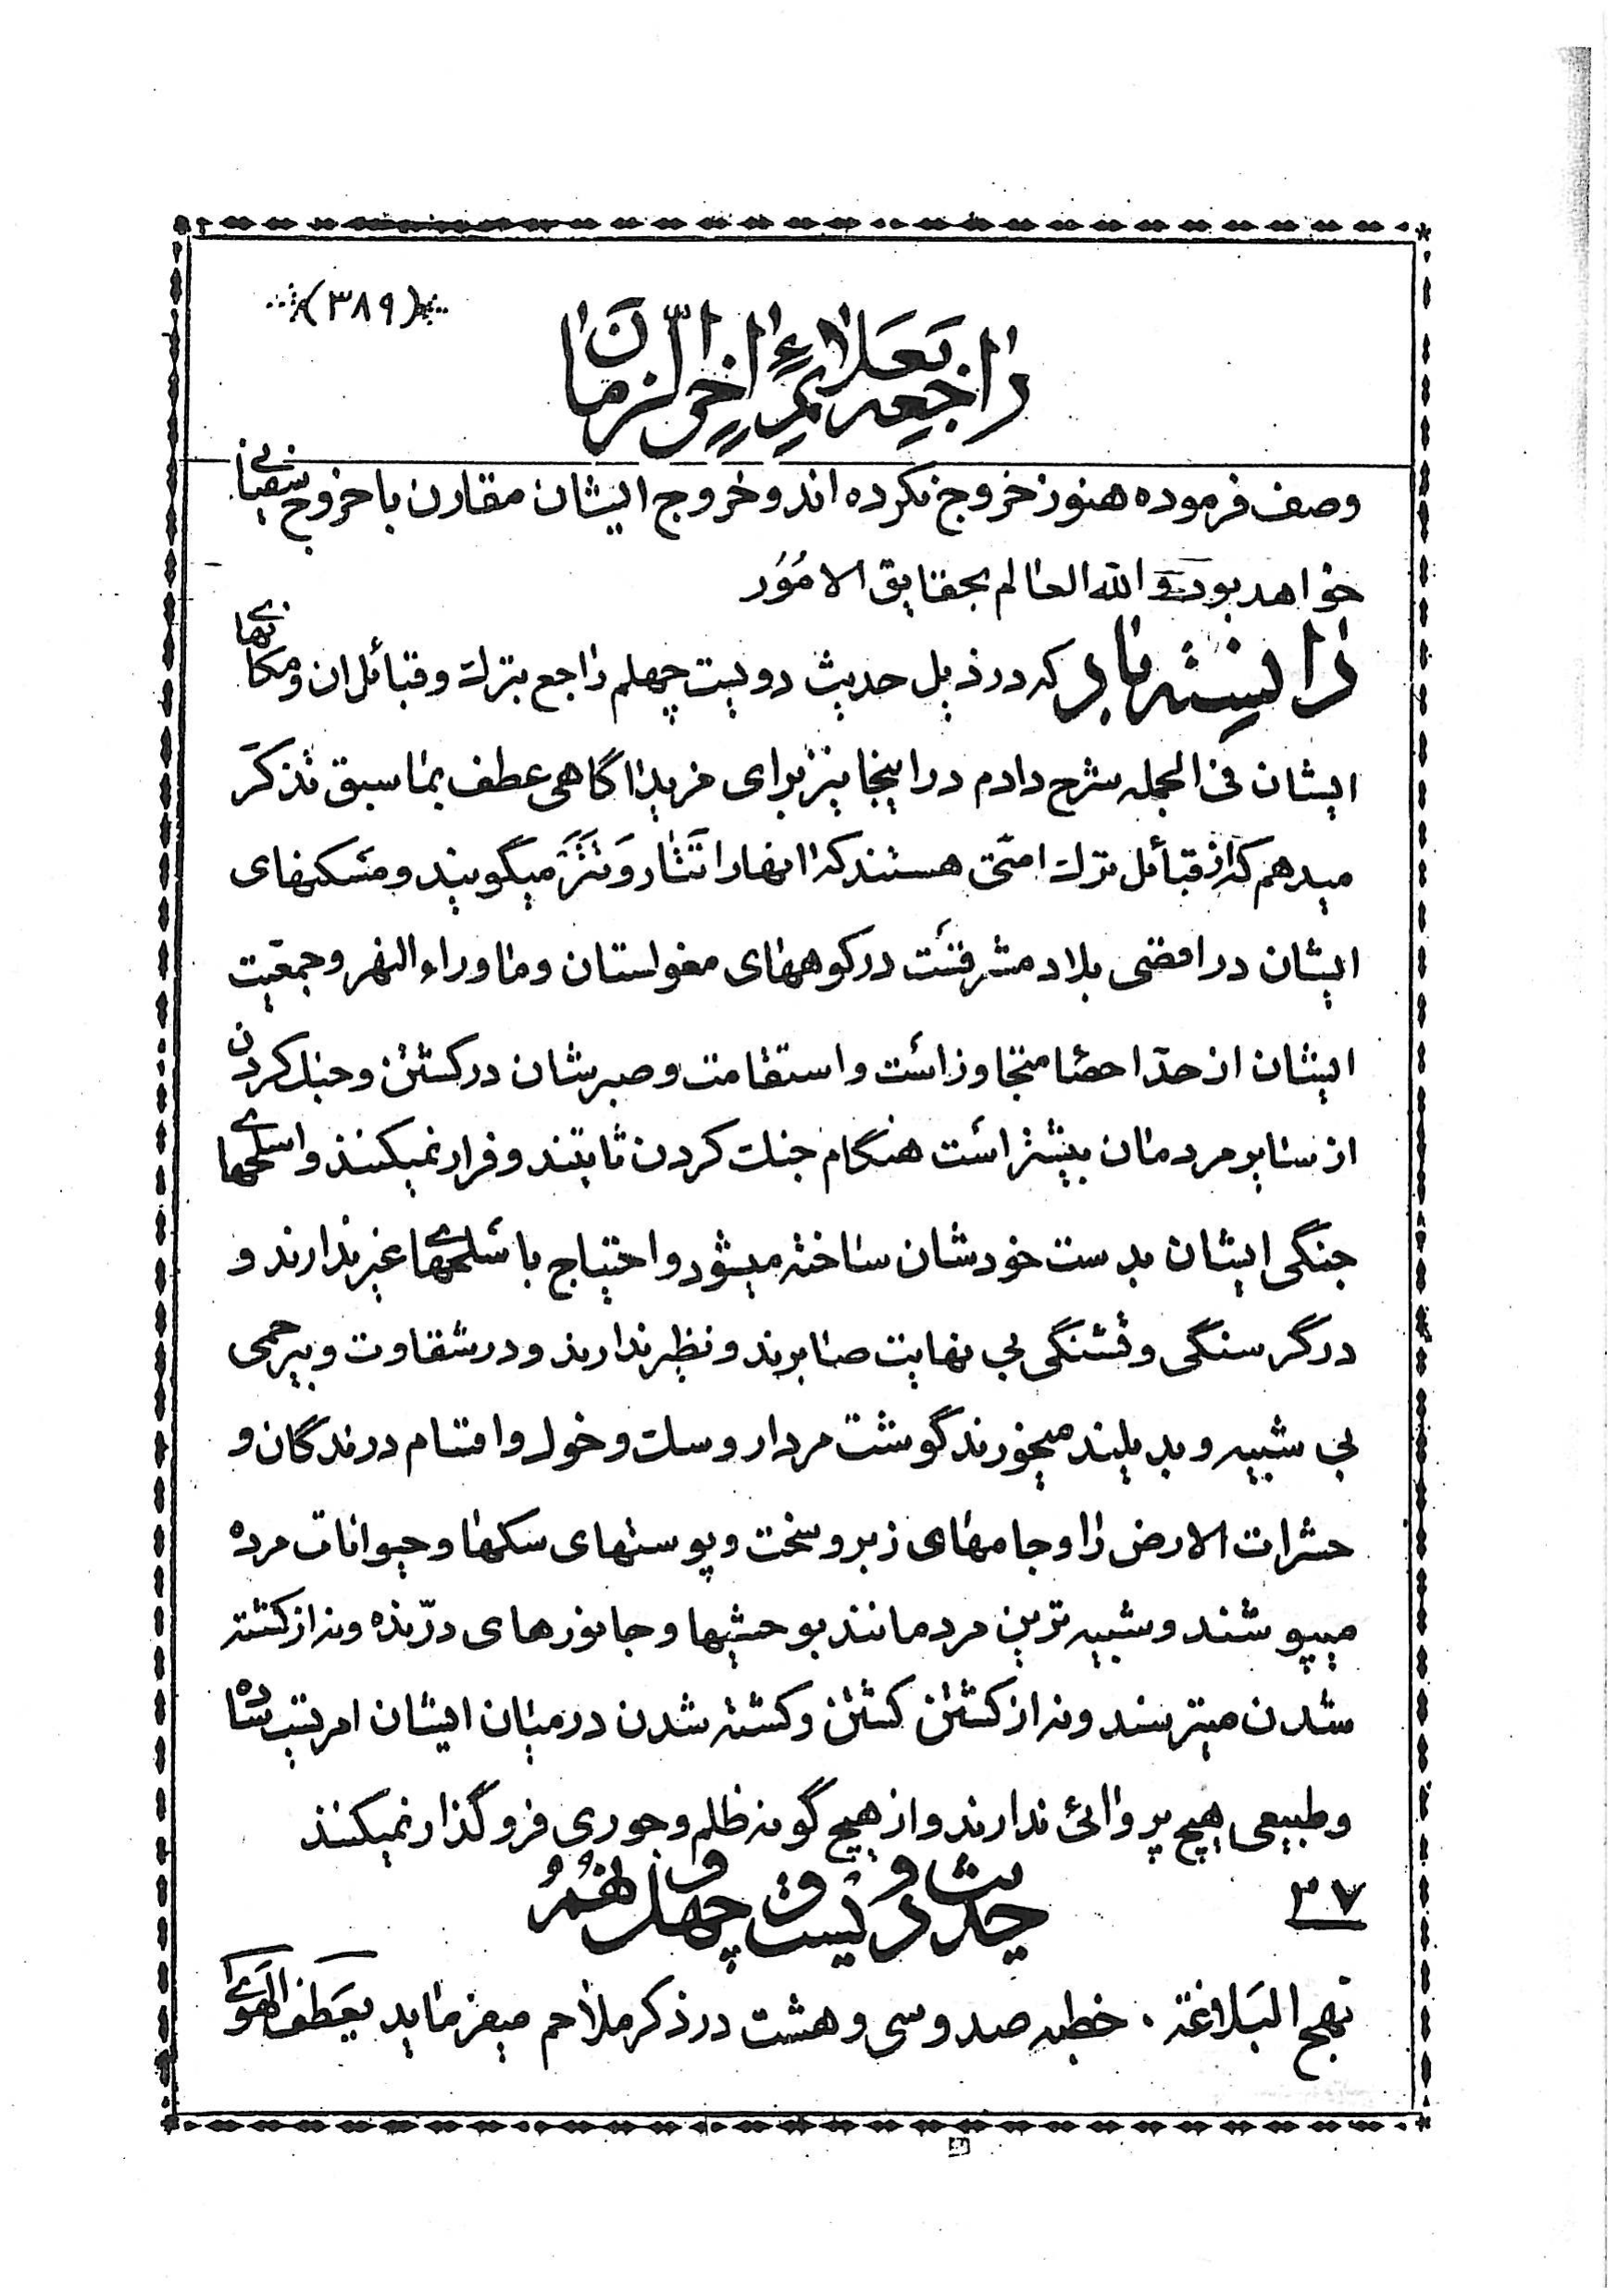 (۳۸۹)
راجعه بعلائم آخر الزمان
وصف فرموده هنوز خروج نکرده اند و خروج ایشان مقارن با خروج سفیانی
خواهد بود و الله العالم بحقایق الامُوُر
دانسته باد که در ذیل حدیث دویست چهلم راجع بترک و قبائل ان و مکانهای
ایشان فی الجمله شرح دادم در اینجا نیز برای مزید اگاهی عطف بما سبق تذکّر
میدهم که از قبائل ترک امتی هستند که انها را تَتٰار وَ تَتَرْ میگویند و مسکنهای
ایشان در اقصی بلاد مشرقست در کوههای مغولستان و ما وراء النهر و جمعیّت
ایشان از حدّ احصا متجاوز است و استقامت و صبرشان در کشتن و جنک کردن
از سایر مردمان بیشتر است هنگام جنک کردن ثابتند و فرار نمیکنند و اسلحهای
جنگی ایشان بدست خودشان ساخته میشود و احتیاج باسلحهای غیر ندارند و
در گرسنگی و تشنگی بی نهایت صابرند و نظیر ندارند و در شقاوت و بیرحمی
بی شبیه و بدیلند میخورند گوشت مردار و سک و خوک و اقسام درندگان و
حشرات الارض را و جامهای زبر و سخت و پوستهای سکها و حیوانات مرده
میپوشند و شبیه ترین مردمانند بوحشیها و جانورهای درّنده و نه از کشته
شدن میترسند و نه از کشتن کشتن و کشته شدن در میان ایشان امریست ساده
و طبیعی هیچ پروائی ندارند و از هیچ گونه ظلم و جوری فروگذار نمیکنند
۳۷ حدیث دویست و چهل و نهُمُ
نهج البَلاغَة . خطبه صد و سی و هشت در ذکر ملاحم میفرماید یَعطِفُ الهَوٰی